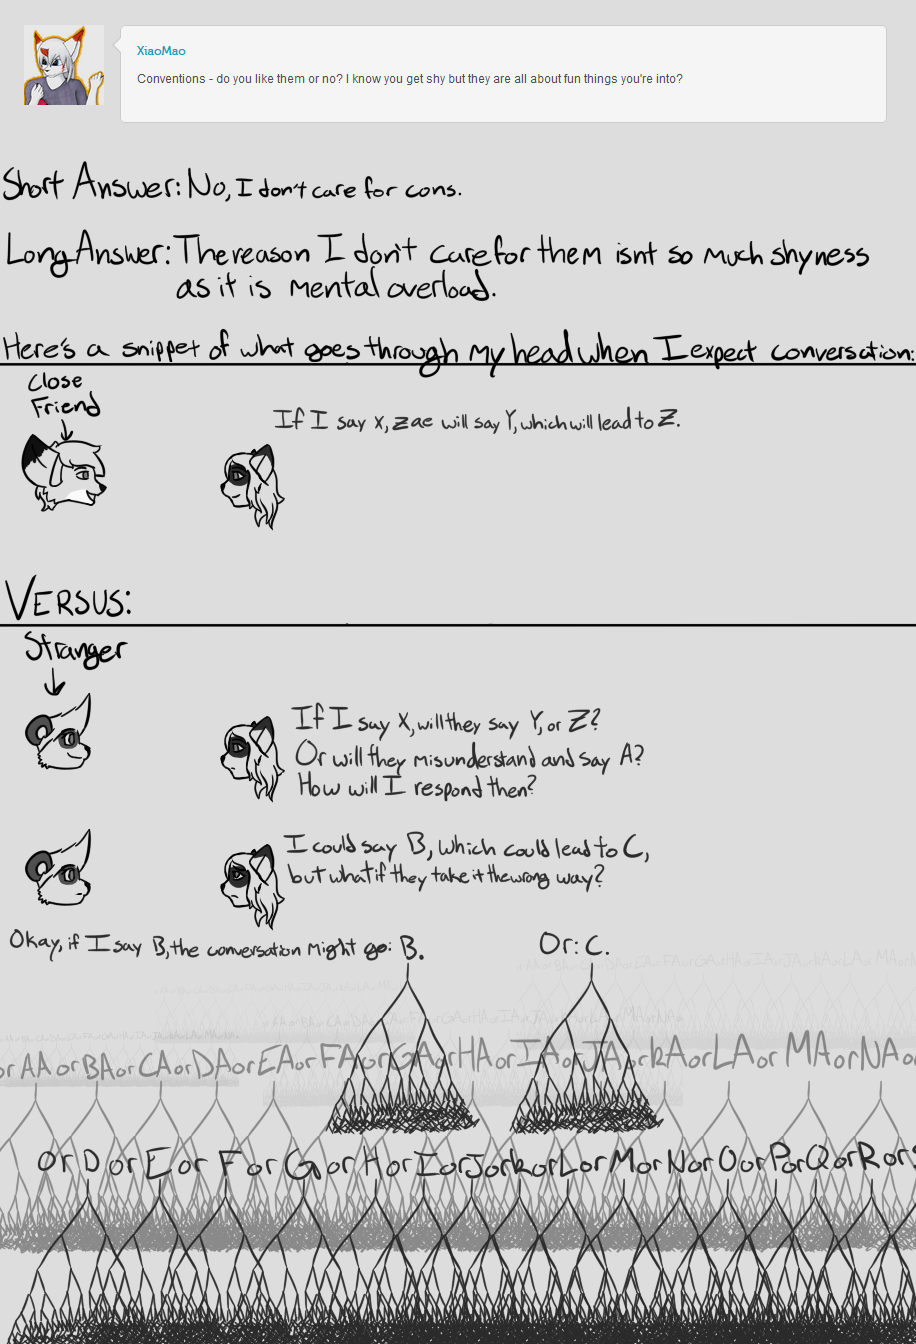 XiaoMao
Conventions - do you like them or no? I know you get shy but they are all about fun things you're into?
Short Answer: No, I don't care for cons.
Long Answer: The reason I don't care for them isnt so much shyness
as it is mental overload.
Here's a snippet of what goes through my head when I expect conversation:
Close
Friend
If I say X, zae will say Y, which will lead to Z.
Versus:
Stranger
If I say X, will they say Y, or Z?
Or will they misunderstand and say A?
How will I respond then?
I could say B, which could lead to C,
but what if they take it the wrong way?
Okay, if I say B, the conversation might go: B. Or: C.
or AA or BA or CA or DA or EA or FA or GA or HA or IA or JA or KA or LA or MA or NA or
or D or E or F or G or H or I or J or K or L or M or N or O or P or Q or R or S